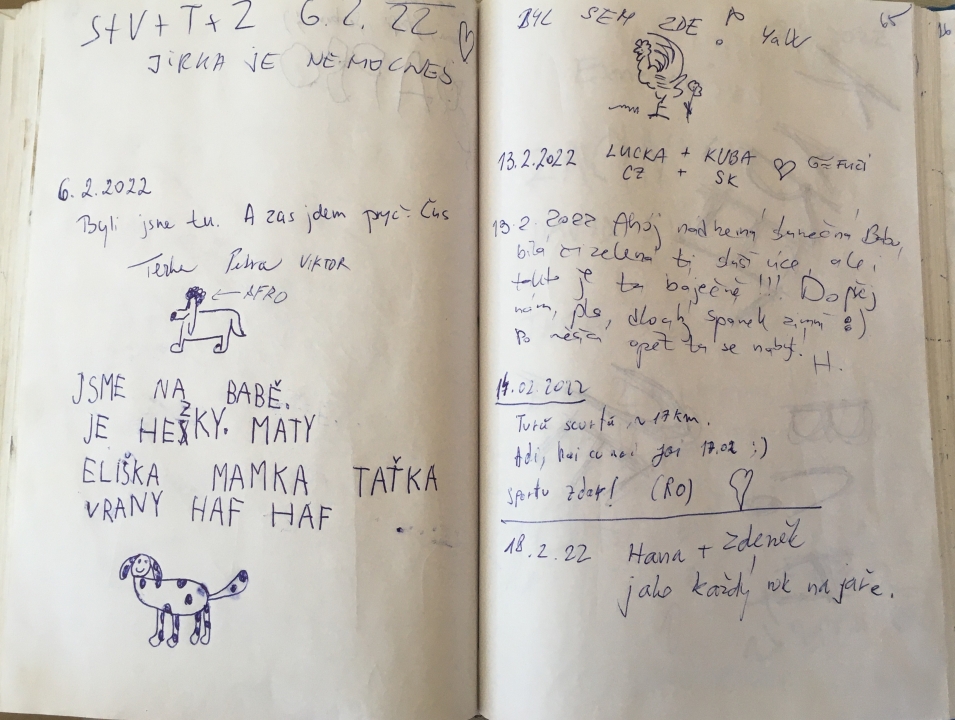 S+V+T+Z 6.2.22
JIRKA JE NEMOCNEJ
6.2.2022
Byli jsme tu. A zas jdem pryč. Čus
Terka Petra VIKTOR
← AFRO
JSME NA BABĚ.
JE HEZKY. MATY
ELIŠKA MAMKA TAŤKA
VRANY HAF HAF
65
BYL SEM ZDE
13.2.2022 LUCKA + KUBA
CZ + SK
13.2.2022 Ahoj nádherná slunečná Babo,
bílá či zelená ti sluší více, ale i
takto je tu báječně!!! Dopřej
nám, pls, dlouhý spánek zimní :)
Po měsíci opět tu se nabíjí.
H.
17.02.2022
Tură scurtă ~ 17 km.
Adi, hai cu noi joi 17.02 :)
Sportu zdar! (RO)
18.2.22 Hana + Zdeněk
jako každý rok na jaře.